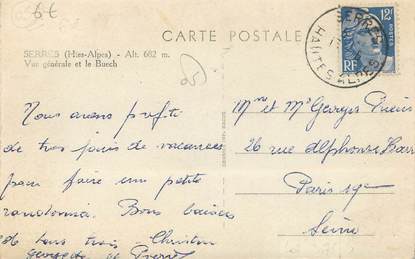 6€
CARTE POSTALE
SERRES (Htes-Alpes) - Alt. 682 m.
Vue générale et le Buech
SERRES
HAUTES-ALPES
12F
RF
Nous avons profité
de trois jours de vacances
pour faire une petite
randonnée. Bons baisers
de tous trois Christian
Georgette et Pierre
Mme et Mr Georges
26 rue Alphonse Karr
Paris 19e
Seine